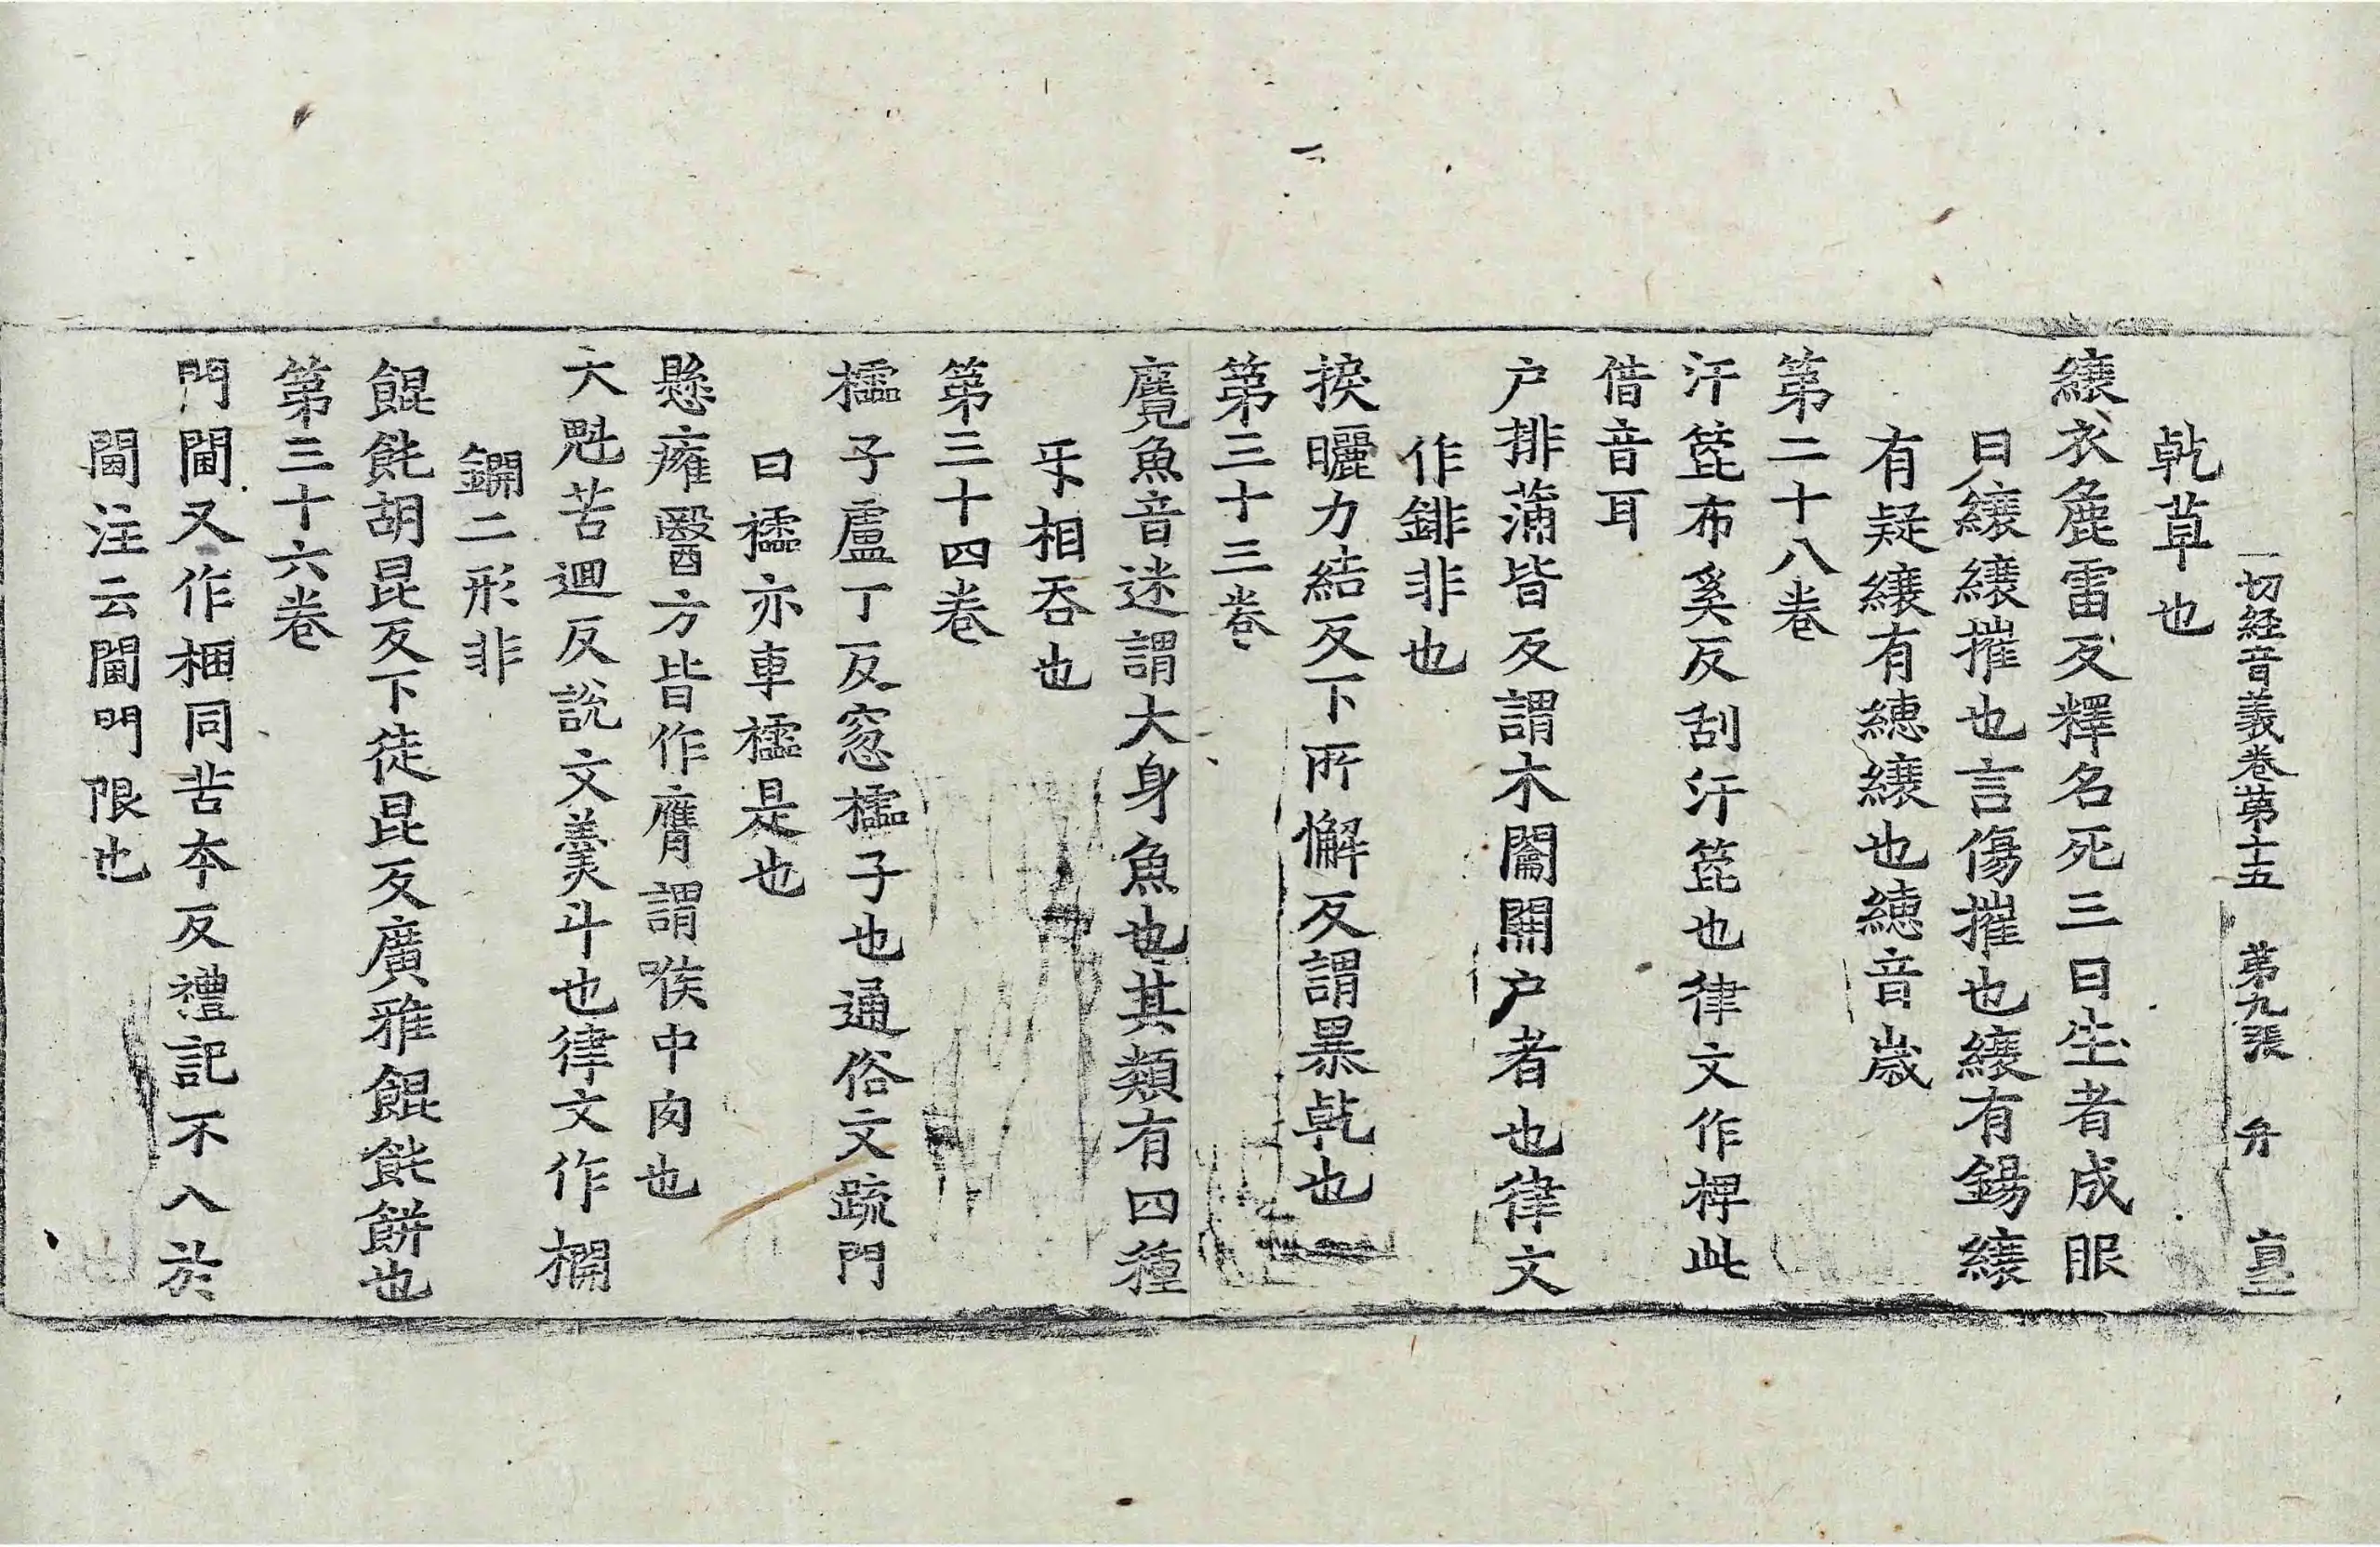 一切經音義卷第十五 第九張 弁
乹草也
縗衣麁雷反釋名死三日生者成服
曰縗縗摧也言傷摧也縗有錫縗
有疑縗有繐縗也繐音歲
第二十八卷
汗篦布奚反刮汗篦也律文作椑此
借音耳
户排蒲皆反謂木闔開户者也律文
作錍非也
捩曬力結反下所懈反謂暴乹也
第三十三卷
麛魚音迷謂大身魚也其類有四種
㸦相吞也
第三十四卷
櫺子盧丁反窓櫺子也通俗文疏門
曰櫺亦車櫺是也
懸癰醫方皆作膺謂喉中肉也
大魁苦迴反說文羹斗也律文作櫊
鐦二形非
餛飩胡昆反下徒昆反廣雅餛飩餅也
第三十六卷
門閫又作梱同苦夲反禮記不入於
閫注云閫門限也